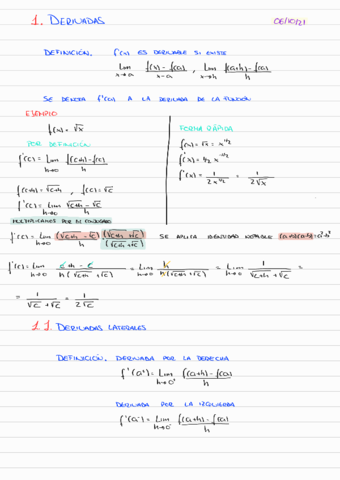 1. DERIVADAS
06/10/21
DEFINICIÓN. f(x) ES DERIVABLE SI EXISTE
Lim x→a f(x) - f(a) / x-a , Lim x→h f(a+h) - f(a) / h
SE DENOTA f'(x) A LA DERIVADA DE LA FUNCIÓN
EJEMPLO
f(x) = √x
POR DEFINICIÓN
f'(c) = Lim h→0 f(c+h) - f(c) / h
f(c+h) = √c+h , f(c) = √c
f'(c) = Lim h→0 √c+h - √c / h
MULTIPLICAMOS POR EL CONJUGADO
FORMA RÁPIDA
f(x) = √x = x^1/2
f'(x) = 1/2 x^-1/2
f'(x) = 1 / 2x^1/2 = 1 / 2√x
f'(c) = Lim h→0 (√c+h - √c) / h (√c+h + √c) / (√c+h + √c) SE APLICA IDENTIDAD NOTABLE (a+b)(a-b) = a²-b²
f'(c) = Lim h→0 c+h - c / h (√c+h + √c) = Lim h→0 h / h (√c+h + √c) = Lim h→0 1 / √c+h + √c =
= 1 / √c + √c = 1 / 2√c
1.1. DERIVADAS LATERALES
DEFINICIÓN. DERIVADA POR LA DERECHA
f'(a⁺) = Lim h→0⁺ f(a+h) - f(a) / h
DERIVADA POR LA IZQUIERDA
f'(a⁻) = Lim h→0⁻ f(a+h) - f(a) / h